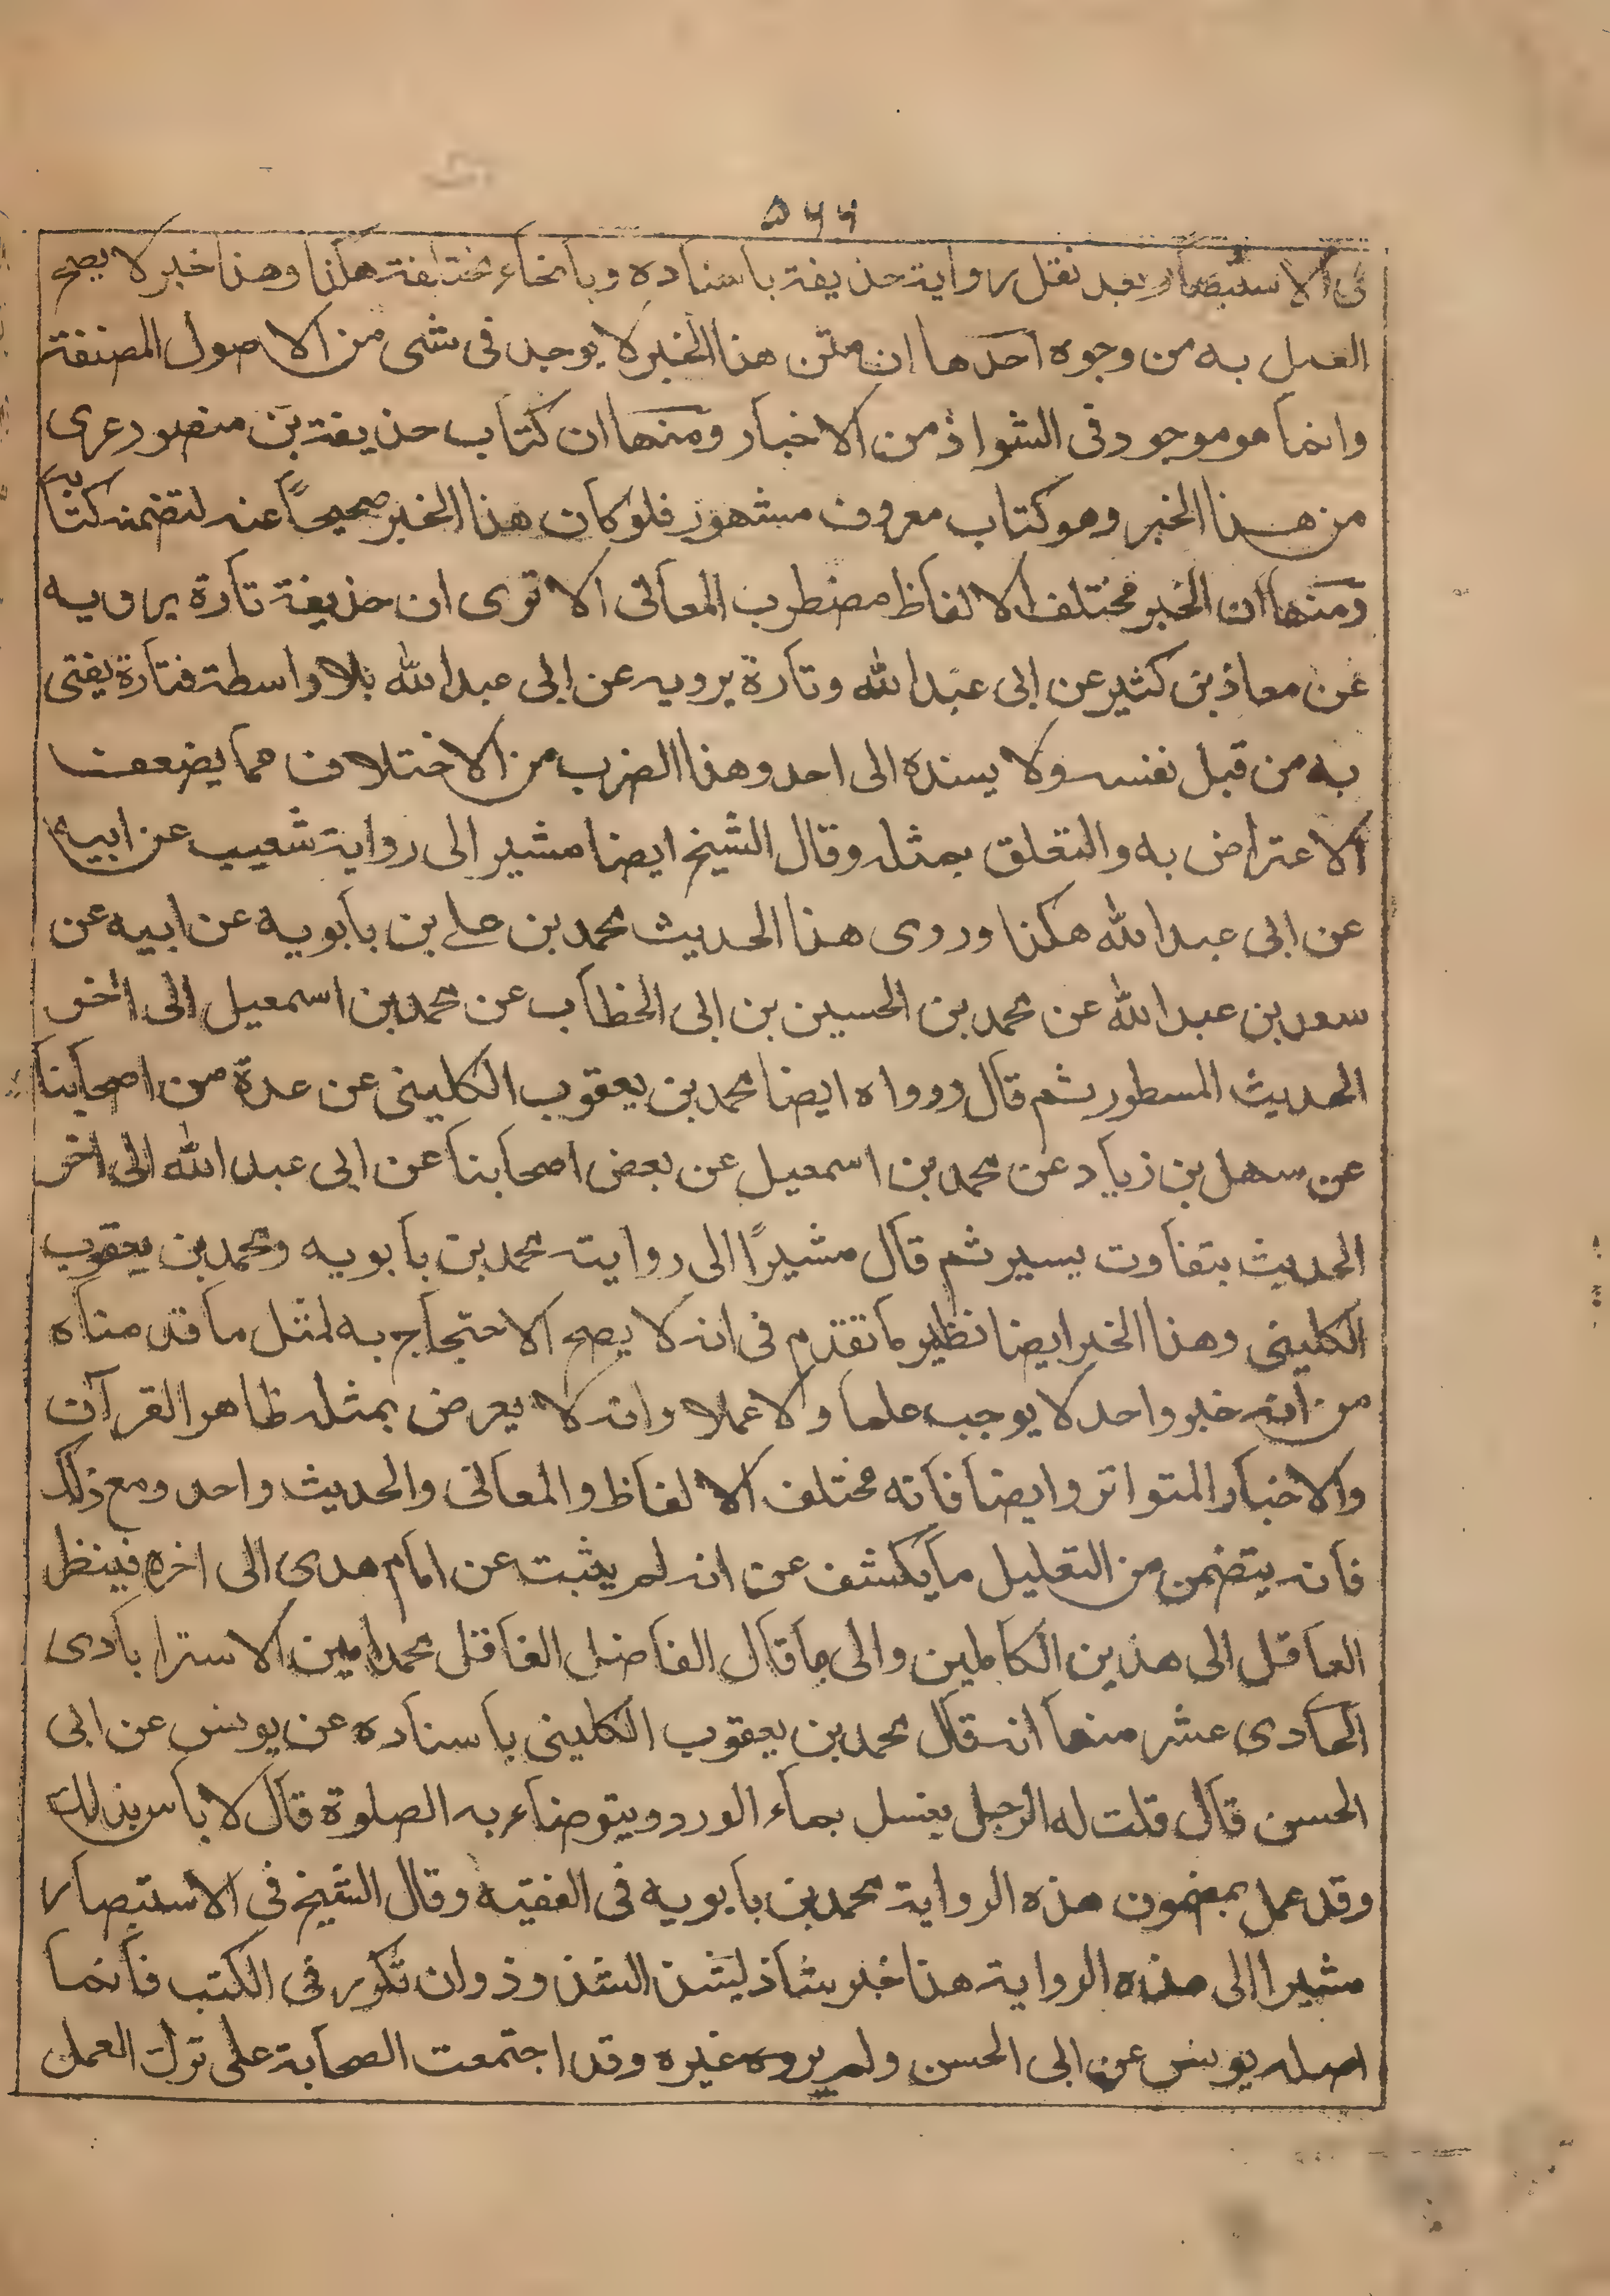 ۵۶۶
فى الاستبصار بعد نقل رواية حذيفة باسناده وبانحاء مختلفة هكذا وهذا خبر لا يصح
العمل به من وجوه احدها ان متن هذا الخبر لا يوجد فى شى من الاصول المصنفة
وانما هو موجود فى الشواذ من الاخبار ومنها ان كتاب حذيفة بن منصور عرى
من هذا الخبر وهو كتاب معروف مشهور فلو كان هذا الخبر صحيحاً عنه لتضمنه كتابه
ومنها ان الخبر مختلف الالفاظ مضطرب المعانى الا ترى ان حذيفة تارة يرويه
عن معاذ بن كثير عن ابى عبد الله وتارة يرويه عن ابى عبد الله بلا واسطة فتارة يفتى
به من قبل نفسه ولا يسنده الى احد وهذا الضرب من الاختلاف مما يضعف
الاعتراض به والتعلق بمثله وقال الشيخ ايضا مشير الى رواية شعيب عن ابيه
عن ابى عبد الله هكذا وروى هذا الحديث محمد بن على بن بابويه عن ابيه عن
سعد بن عبد الله عن محمد بن الحسين بن ابى الخطاب عن محمد بن اسمعيل الى اخر
الحديث المسطور ثم قال ورواه ايضا محمد بن يعقوب الكلينى عن عدة من اصحابنا
عن سهل بن زياد عن محمد بن اسمعيل عن بعض اصحابنا عن ابى عبد الله الى اخر
الحديث بتفاوت يسير ثم قال مشيرًا الى رواية محمد بن بابويه ومحمد بن يعقوب
الكلينى وهذا الخبر ايضا نظير ما تقدم فى انه لا يصح الاحتجاج به لمثل ما قدمناه
من انه خبر واحد لا يوجب علما ولا عملا وانه لا يعرض بمثله ظاهر القرآن
والاخبار المتواتر وايضا فانه مختلف الالفاظ والمعانى والحديث واحد ومع ذلك
فانه يتضمن من التعليل ما يكشف عن انه لم يثبت عن امام هدى الى اخره فينظر
العاقل الى هذين الكاملين والى ما قال الفاضل الغافل محمد امين الاسترابادى
الحادى عشر منها انه قال محمد بن يعقوب الكلينى باسناده عن يونس عن ابى
الحسن قال قلت له الرجل يغسل بماء الورد ويتوضاء به الصلوة قال لا باس بذلك
وقد عمل بمضمون هذه الرواية محمد بن بابويه فى الفقيه وقال الشيخ فى الاستبصار
مشيرا الى هذه الرواية هذا خبر شاذ ليشذ الشذوذ وان تكرر فى الكتب فانما
اصله يونس عن ابى الحسن ولم يروه غيره وقد اجتمعت الصحابة على ترك العمل